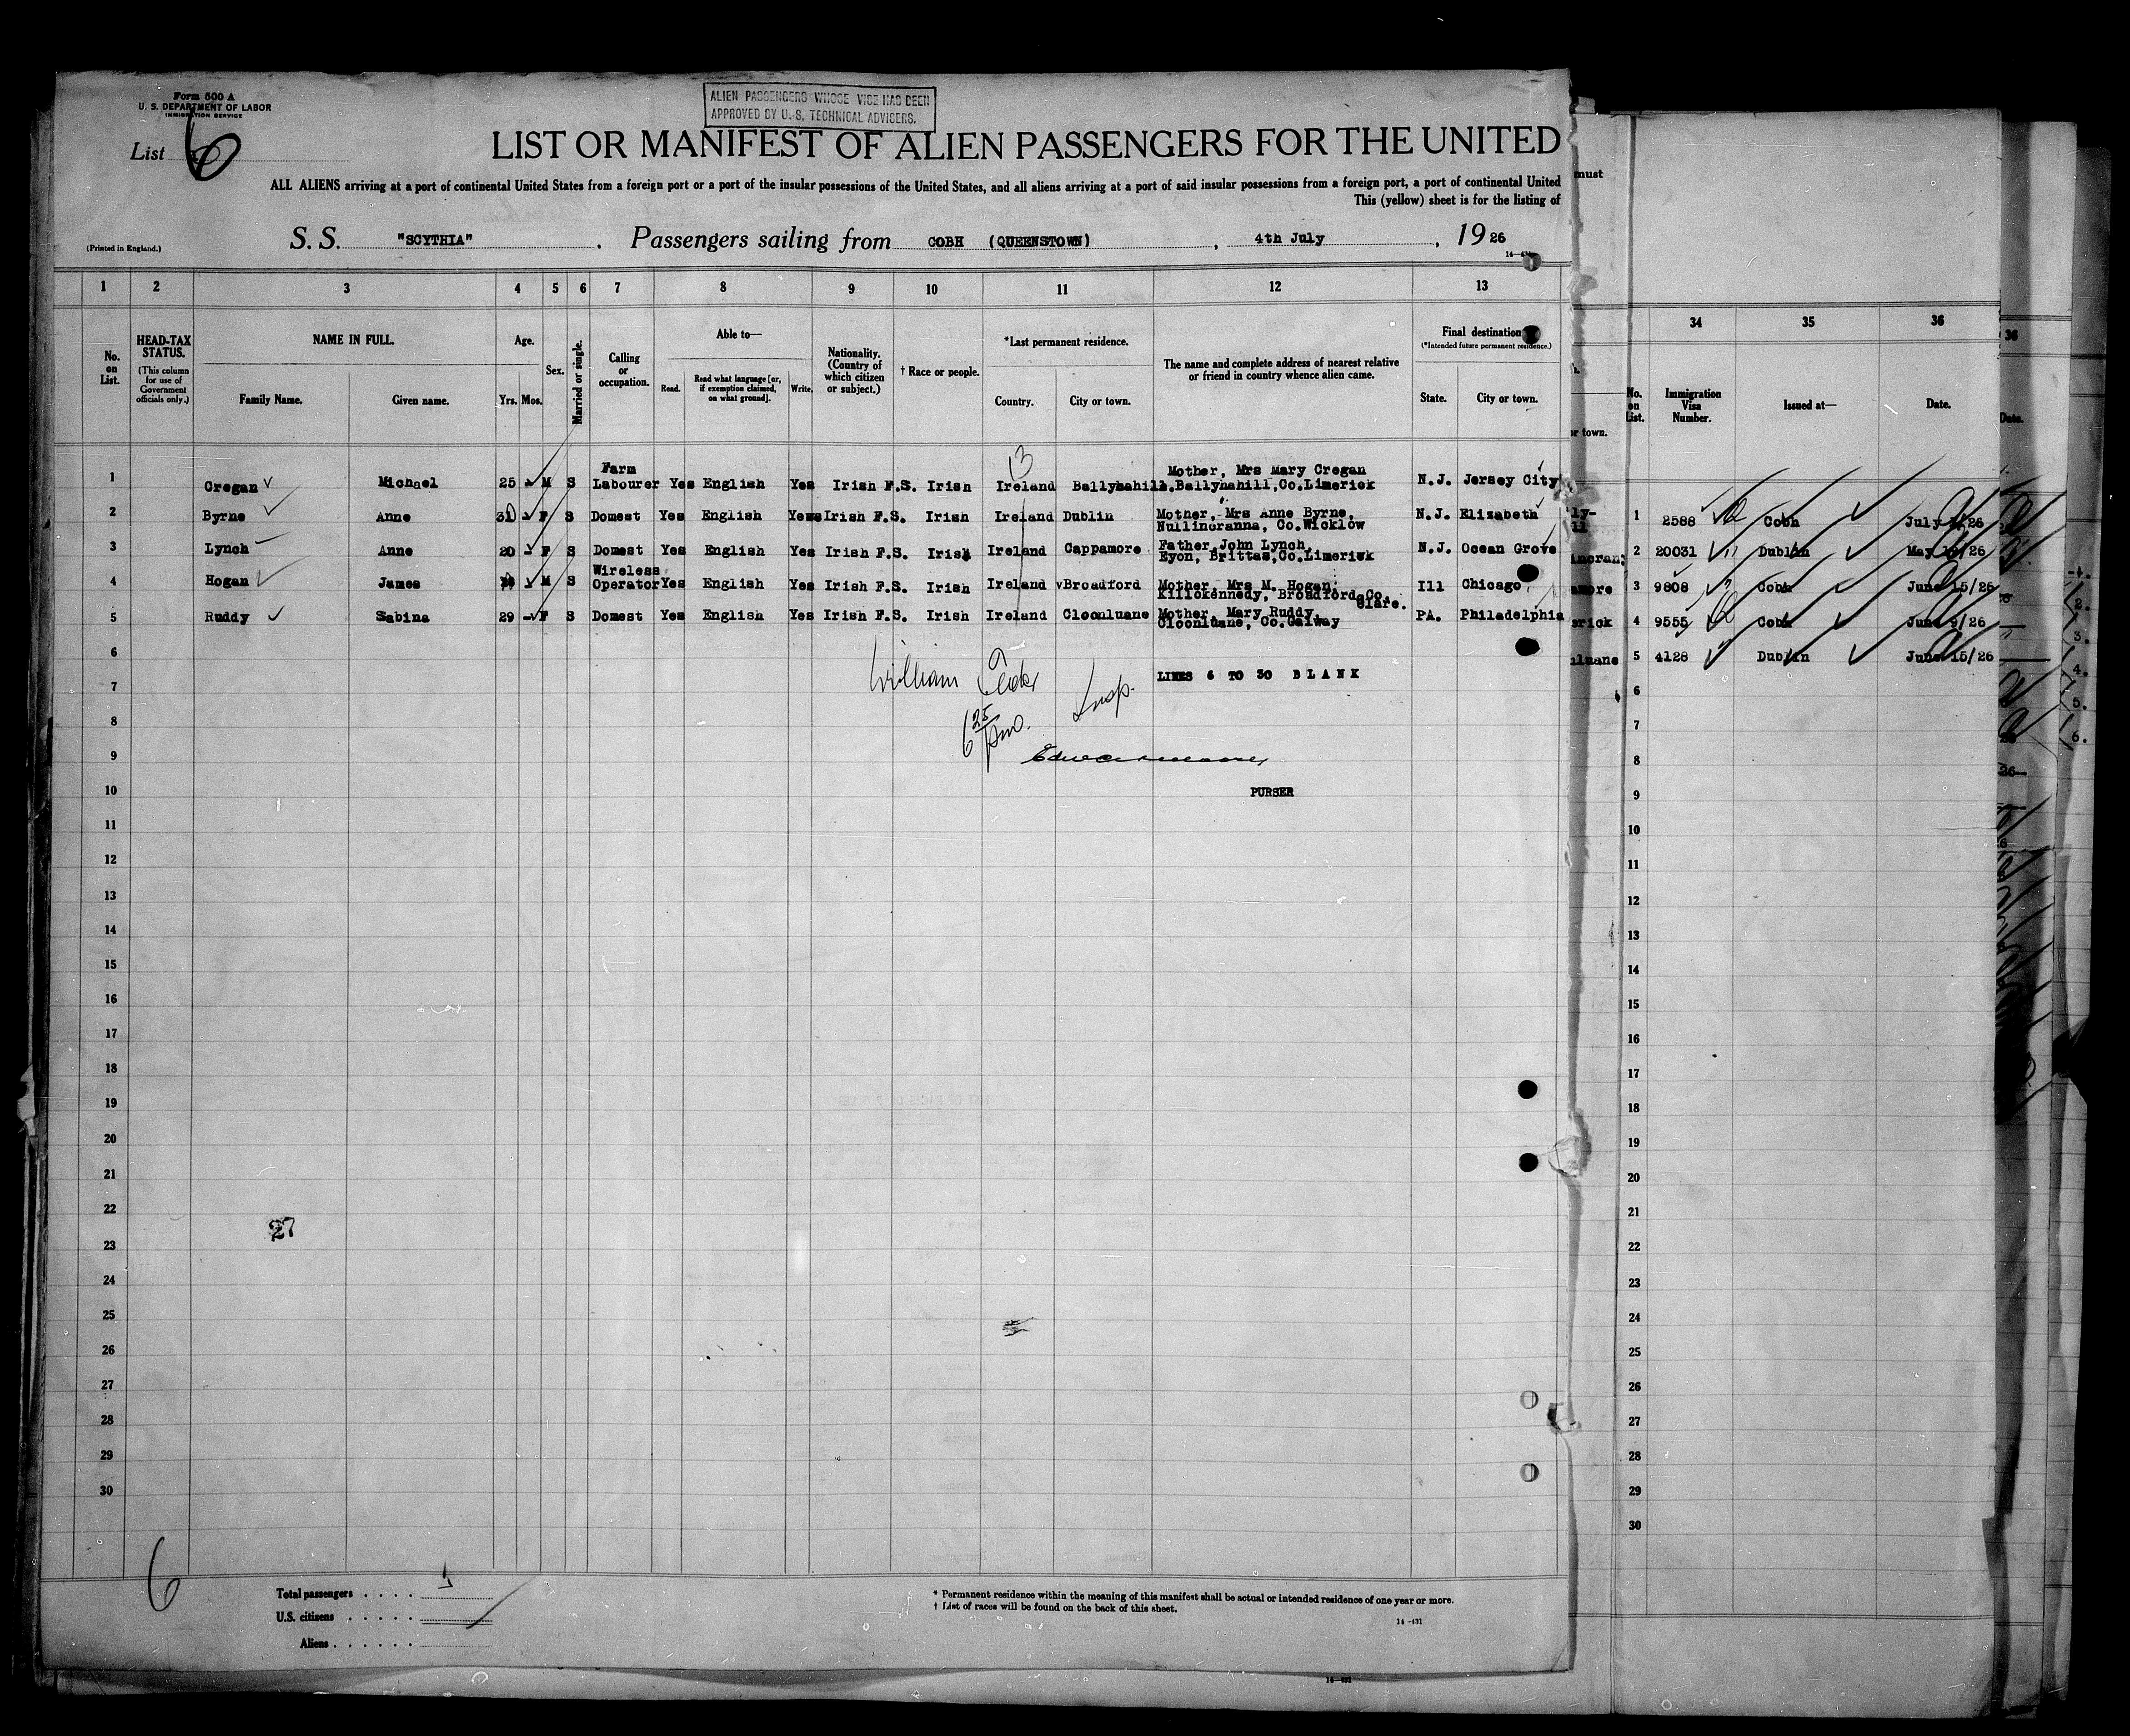 Form 500 A
U. S. DEPARTMENT OF LABOR
IMMIGRATION SERVICE
ALIEN PASSENGERS WHOSE VISE HAS BEEN
APPROVED BY U. S. TECHNICAL ADVISERS.
List 6
LIST OR MANIFEST OF ALIEN PASSENGERS FOR THE UNITED
ALL ALIENS arriving at a port of continental United States from a foreign port or a port of the insular possessions of the United States, and all aliens arriving at a port of said insular possessions from a foreign port, a port of continental United
must
This (yellow) sheet is for the listing of
(Printed in England.)
S. S. "SCYTHIA" . Passengers sailing from COBH (QUEENSTOWN) , 4th July , 19 26
1 2 3 4 5 6 7 8 9 10 11 12 13
No. on List.
HEAD-TAX STATUS.
(This column for use of Government officials only.)
NAME IN FULL.
Family Name. Given name.
Age.
Yrs. Mos.
Sex.
Married or single.
Calling or occupation.
Able to—
Read. Read what language [or, if exemption claimed, on what ground]. Write.
Nationality. (Country of which citizen or subject.)
† Race or people.
*Last permanent residence.
Country. City or town.
The name and complete address of nearest relative or friend in country whence alien came.
Final destination
(*Intended future permanent residence.)
State. City or town.
34 35 36
No. on List. Immigration Visa Number. Issued at— Date.
36
Date.
or town.
13
1 Cregan Michael 25 - M S Farm Labourer Yes English Yes Irish F.S. Irish Ireland Ballyhahill. Mother, Mrs Mary Cregan Ballyhahill,Co.Limerick N.J. Jersey City
2 Byrne Anne 31 - F S Domest Yes English Yes Irish F.S. Irish Ireland Dublin Mother, Mrs Anne Byrne, Nullinoranna, Co.Wicklow N.J. Elizabeth
3 Lynch Anne 20 - F S Domest Yes English Yes Irish F.S. Irish Ireland Cappamore Father,John Lynch, Eyon, Brittas,Co.Limerick N.J. Ocean Grove
4 Hogan James - M S Wireless Operator Yes English Yes Irish F.S. Irish Ireland Broadford Mother, Mrs M. Hogan, Killokennedy, Broadford,Co. Clare. Ill Chicago
5 Ruddy Sabina 29 - F S Domest Yes English Yes Irish F.S. Irish Ireland Cloonluane Mother, Mary Ruddy, Cloonluane, Co.Galway PA. Philadelphia
1 2588 Cobh July /26
2 20031 Dublin May /26
3 9808 Cobh June 15/26
4 9555 Cobh June 9/26
5 4128 Dublin June 15/26
6
7
8
9
10
11
12
13
14
15
16
17
18
19
20
21
22
23
24
25
26
27
28
29
30
William
Insp.
LINES 6 TO 30 BLANK
PURSER
6
7
8
9
10
11
12
13
14
15
16
17
18
19
20
21
22
23
24
25
26
27
28
29
30
27
6
Total passengers . . . .
U.S. citizens . . . . .
Aliens . . . . . .
* Permanent residence within the meaning of this manifest shall be actual or intended residence of one year or more.
† List of races will be found on the back of this sheet.
14-431